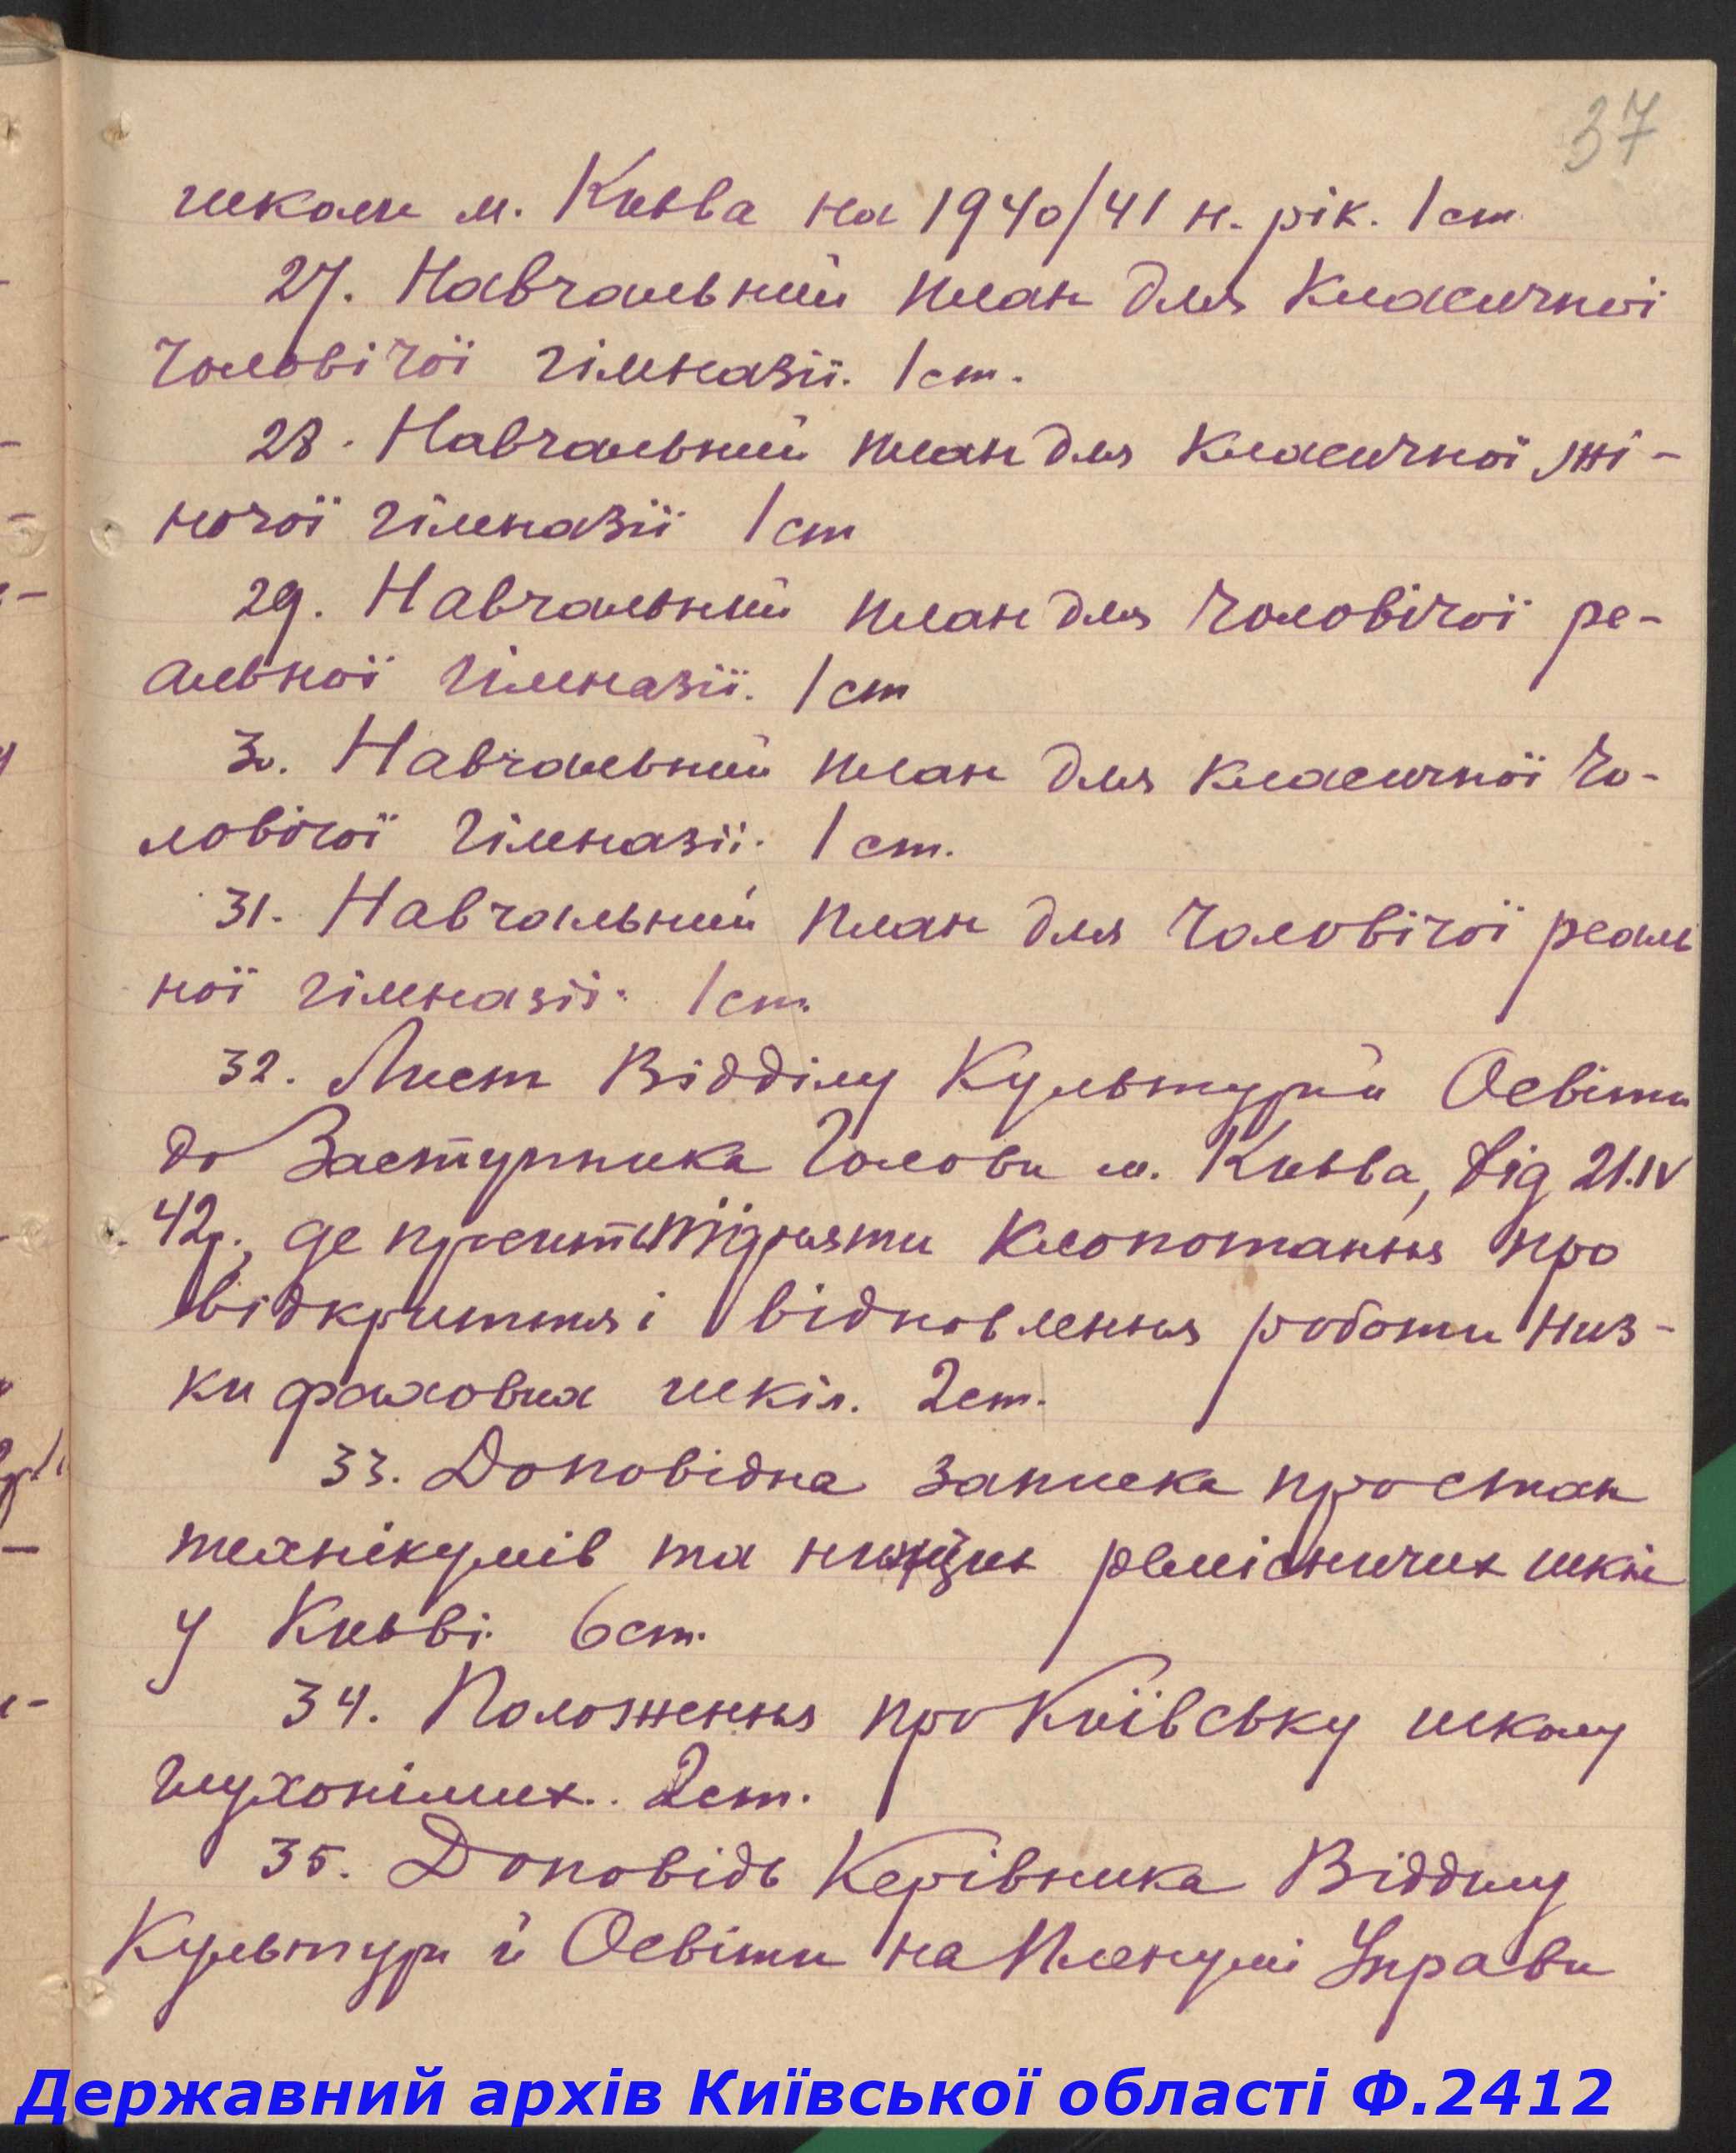 37
школи м. Києва на 1940/41 н. рік. 1 ст
27. Навчальний план для класичної
чоловічої гімназії. 1 ст.
28. Навчальний план для класичної жі-
ночої гімназії 1 ст
29. Навчальний план для чоловічої ре-
альної гімназії. 1 ст
30. Навчальний план для класичної чо-
ловічої гімназії. 1 ст.
31. Навчальний план для чоловічої реаль
ної гімназії. 1 ст.
32. Лист Відділу Культури й Освіти
до Заступника Голови м. Києва, від 21.IV
42р., де просить підняти клопотання про
відкриття і відновлення роботи низ-
ки фахових шкіл. 2 ст.
33. Доповідна записка про стан
технікумів та нижчих ремісничих шкіл
у Києві. 6 ст.
34. Положення про Київську школу
глухонімих. 2 ст.
35. Доповідь Керівника Відділу
Культури й Освіти на Пленумі Управи
Державний архів Київської області Ф.2412